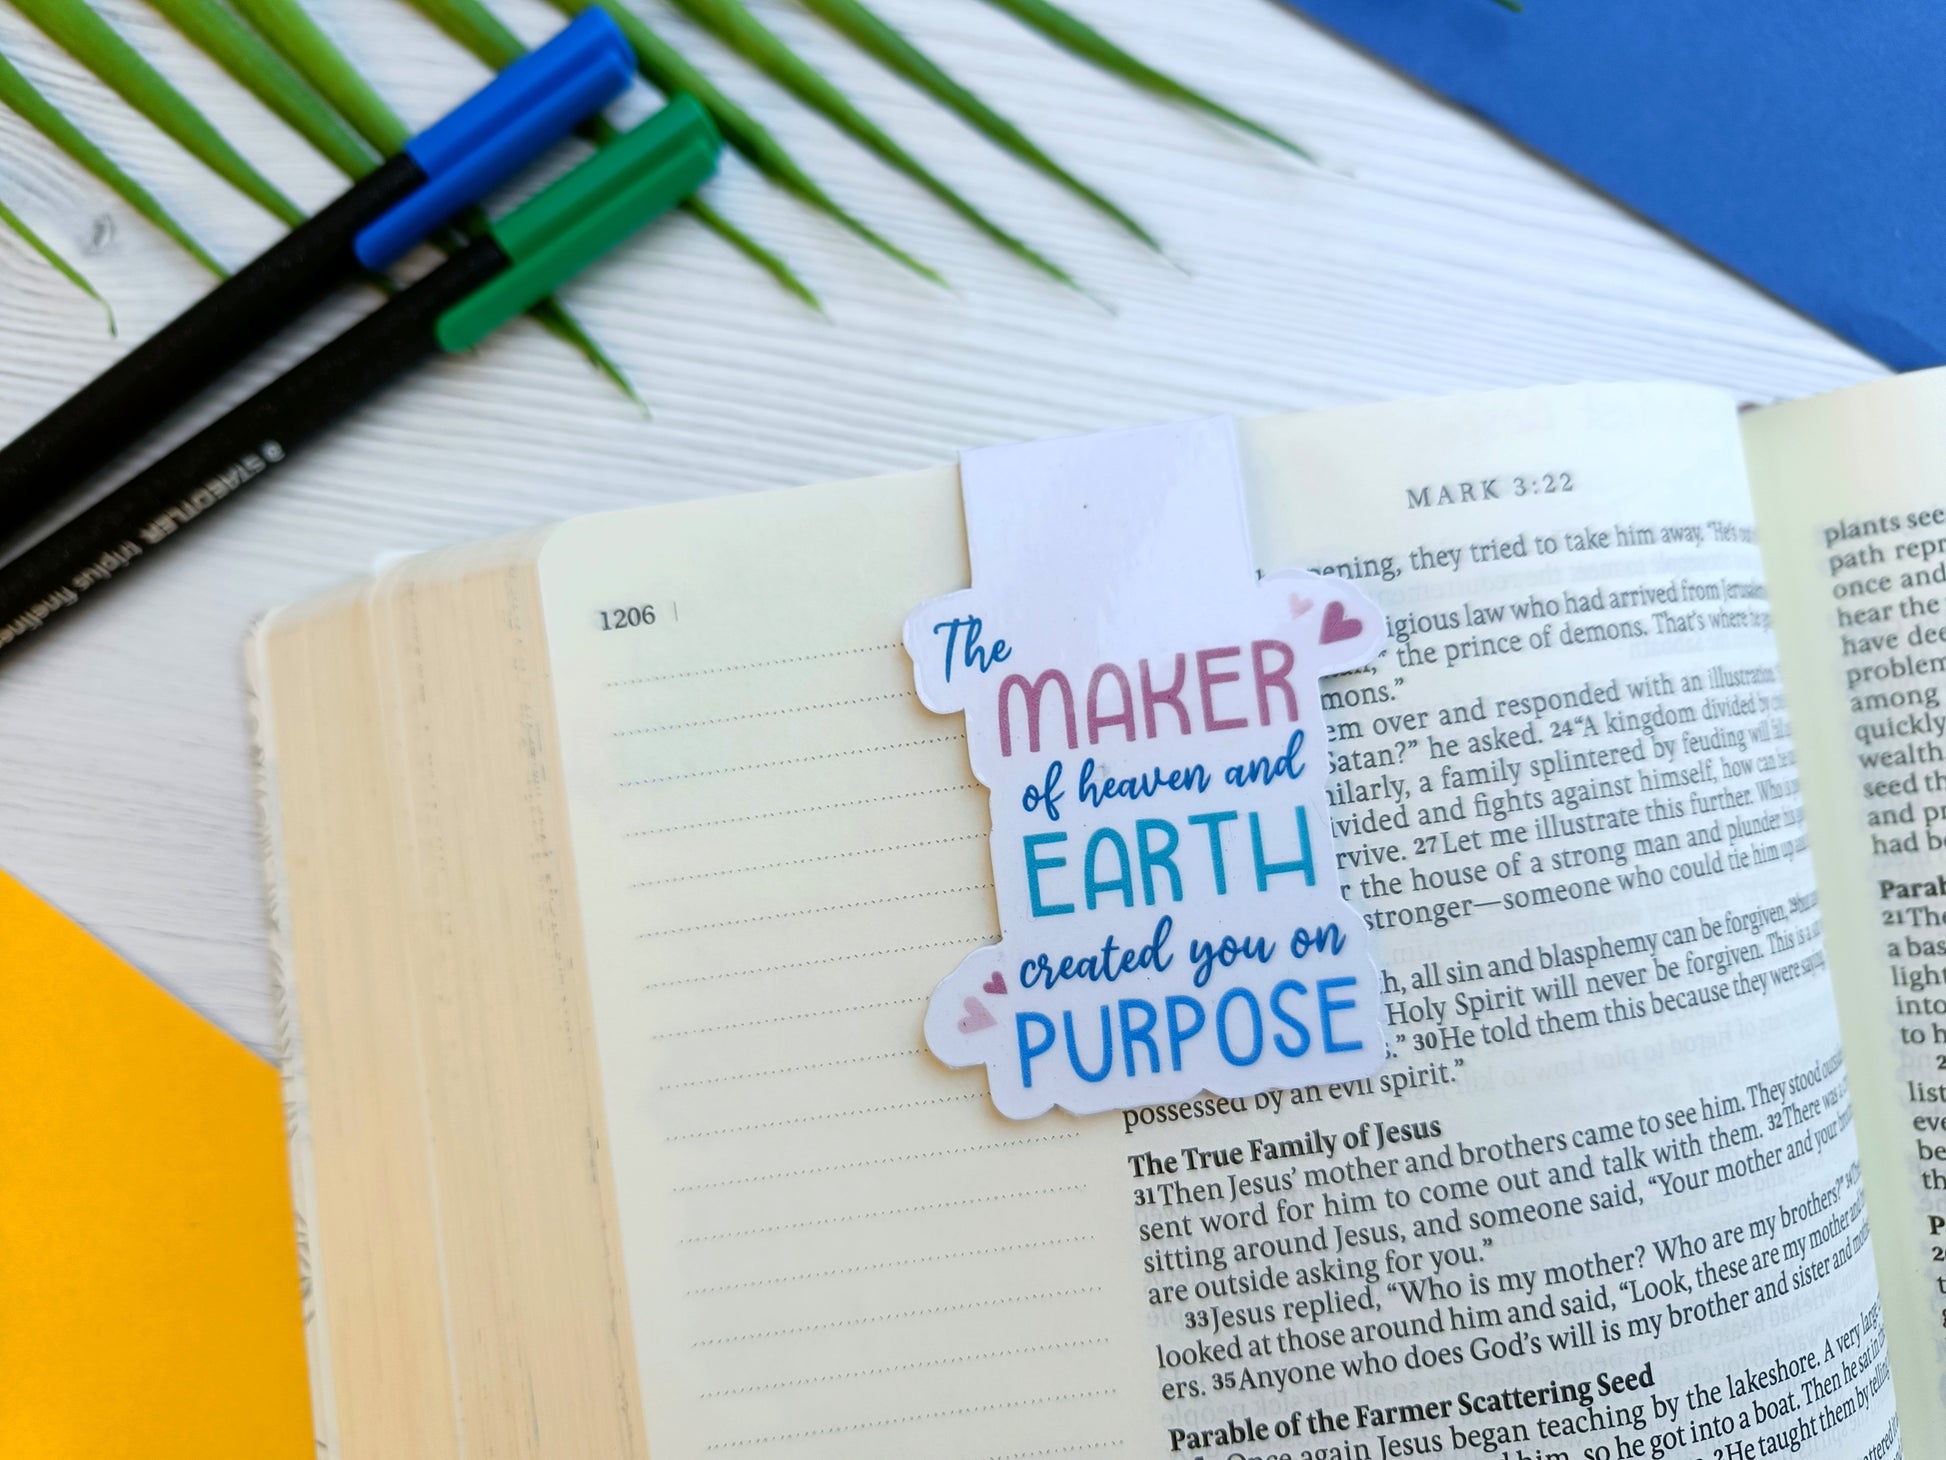 STAEDTLER triplus fineliner
1206
MARK 3:22
The
MAKER
of heaven and
EARTH
created you on
PURPOSE
they tried to take him away. "He's
igious law who had arrived from Jerusalem
the prince of demons. That's where
mons."
em over and responded with an illustration.
Satan?" he asked. 24 "A kingdom divided by
ilarly, a family splintered by feuding will
ivided and fights against himself, how can
rvive. 27 Let me illustrate this further. Who is
the house of a strong man and plunder his
stronger—someone who could tie him up
h, all sin and blasphemy can be forgiven,
Holy Spirit will never be forgiven. This is a
." 30 He told them this because they were saying,
possessed by an evil spirit."
The True Family of Jesus
31 Then Jesus' mother and brothers came to see him. They stood outside
sent word for him to come out and talk with them. 32 There was a
sitting around Jesus, and someone said, "Your mother and your
are outside asking for you."
33 Jesus replied, "Who is my mother? Who are my brothers?" 34
looked at those around him and said, "Look, these are my mother and
ers. 35 Anyone who does God's will is my brother and sister and
Parable of the Farmer Scattering Seed
Once again Jesus began teaching by the lakeshore. A very large
him, so he got into a boat. Then he sat in
2 He taught them by
plants see
path repr
once and
hear the
have dee
problem
among
quickly
wealth,
seed th
and pr
had be
Parab
21 The
a bas
light
into
to h
list
eve
be
th